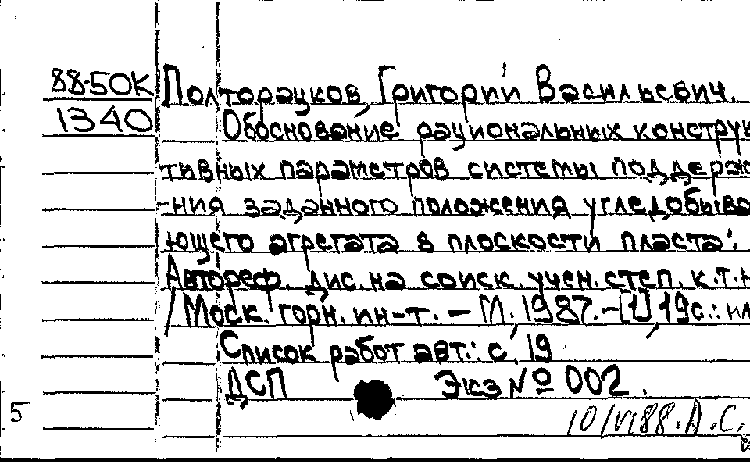 88-50К Полторацков, Григорий Васильевич.
1340 Обоснование рациональных конструк
тивных параметров системы поддержа
-ния заданного положения угледобыва
ющего агрегата в плоскости пласта:
Автореф. дис. на соиск. учен. степ. к.т.н
/ Моск. горн. ин-т. - М., 1987. - [1], 19 с.: ил
Список работ авт.: с. 19
ДСП Экз № 002.
5
10/VI88. А.С.